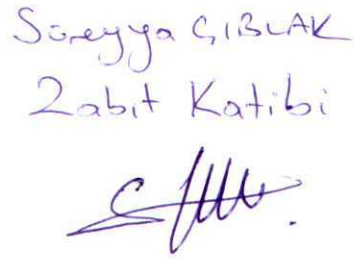 Süreyya ÇIBLAK
Zabıt Katibi